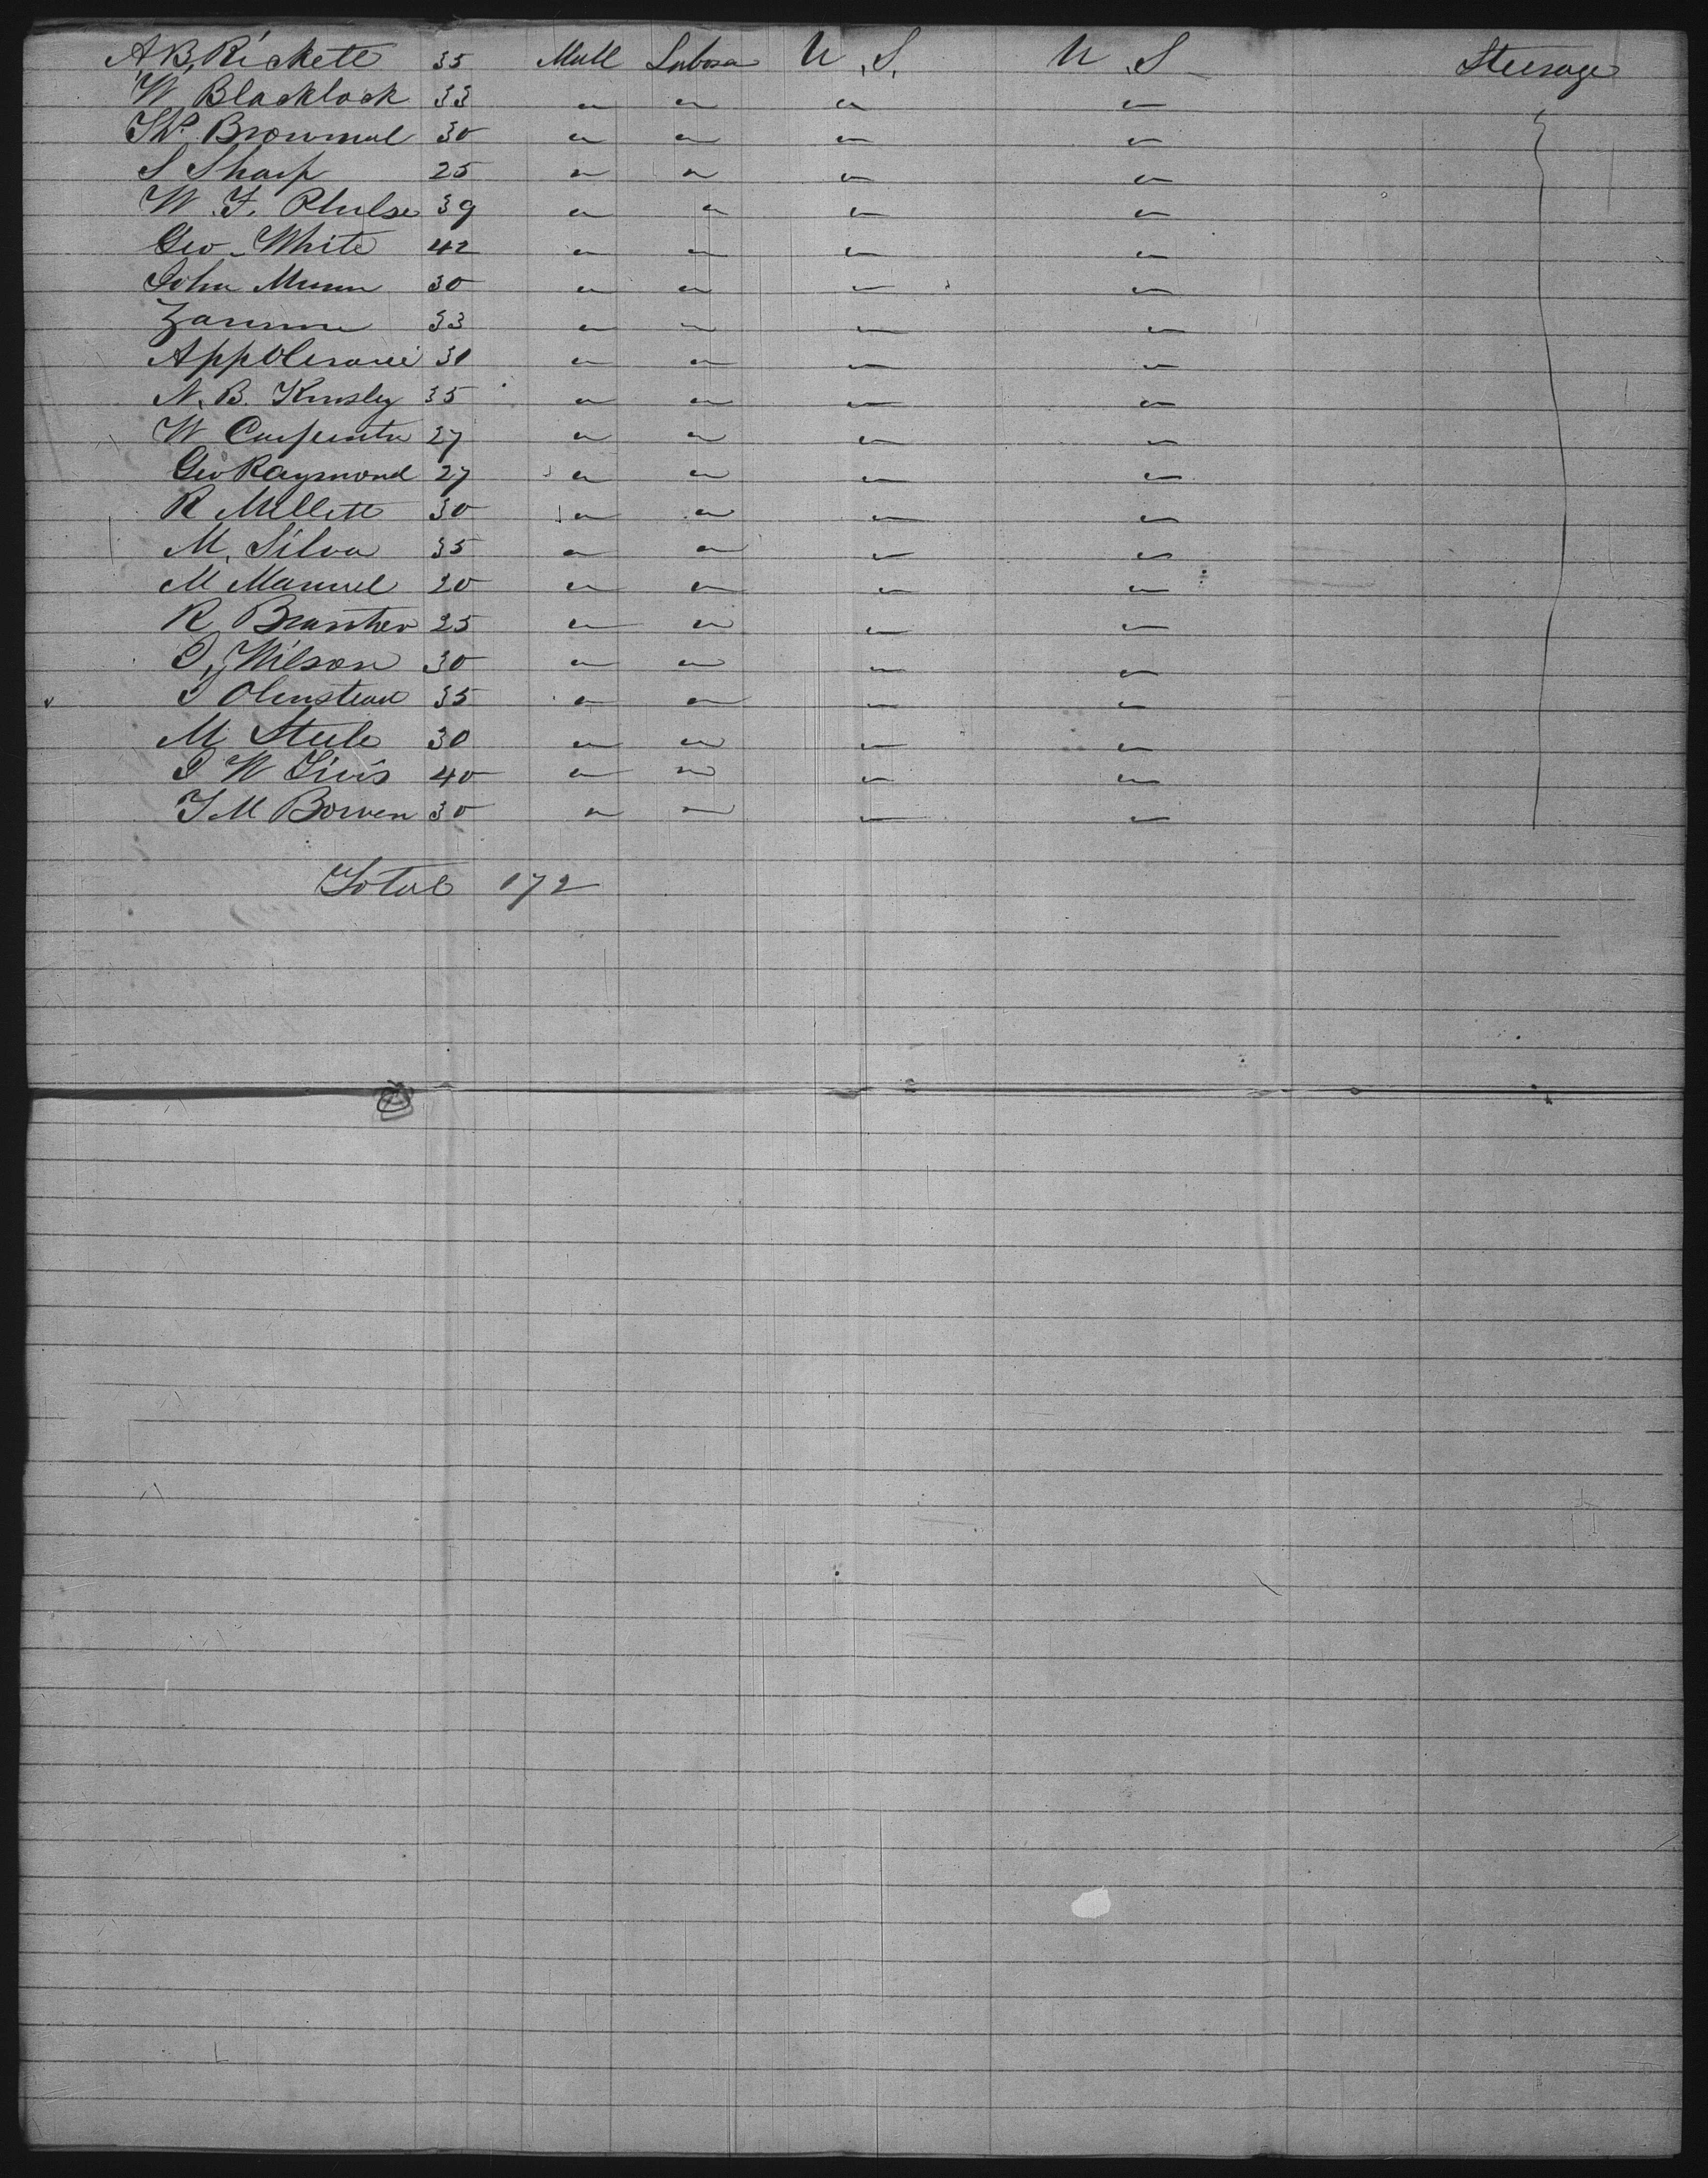 A B Rickett 35 Male Labora U.S. U.S Steerage
W Blacklock 33 " " " "
Ths Brownul 30 " " " "
S Sharp 25 " " " "
W. F. Phulse 39 " " " "
Geo White 42 " " " "
John Munn 30 " " " "
33 " " " "
31 " " " "
N. B. Kinsley 35 " " " "
W Carpenter 27 " " " "
Geo Raymond 27 " " " "
R Millett 30 " " " "
M. Silva 35 " " " "
M Manuel 20 " " " "
R 25 " " " "
J Wilson 30 " " " "
J Olmstead 35 " " " "
M Steele 30 " " " "
J W 40 " " " "
J M Bowen 30 " " " "
Total 172